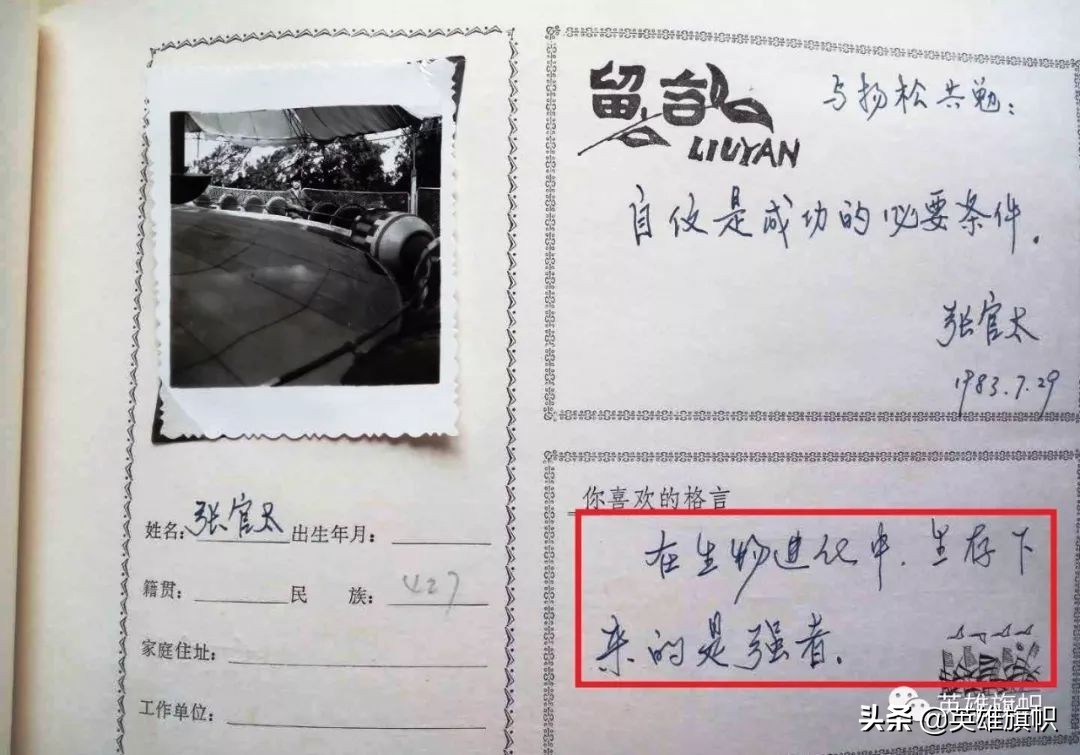 姓名:张官太 出生年月:
籍贯: 民 族: 427
家庭住址:
工作单位:
留言
LIUYAN
与扬松共勉:
自仪是成功的必要条件.
张官太
1983.7.29
你喜欢的格言
在生物进化中.生存下
来的是强者.
英雄旗帜
头条 @英雄旗帜